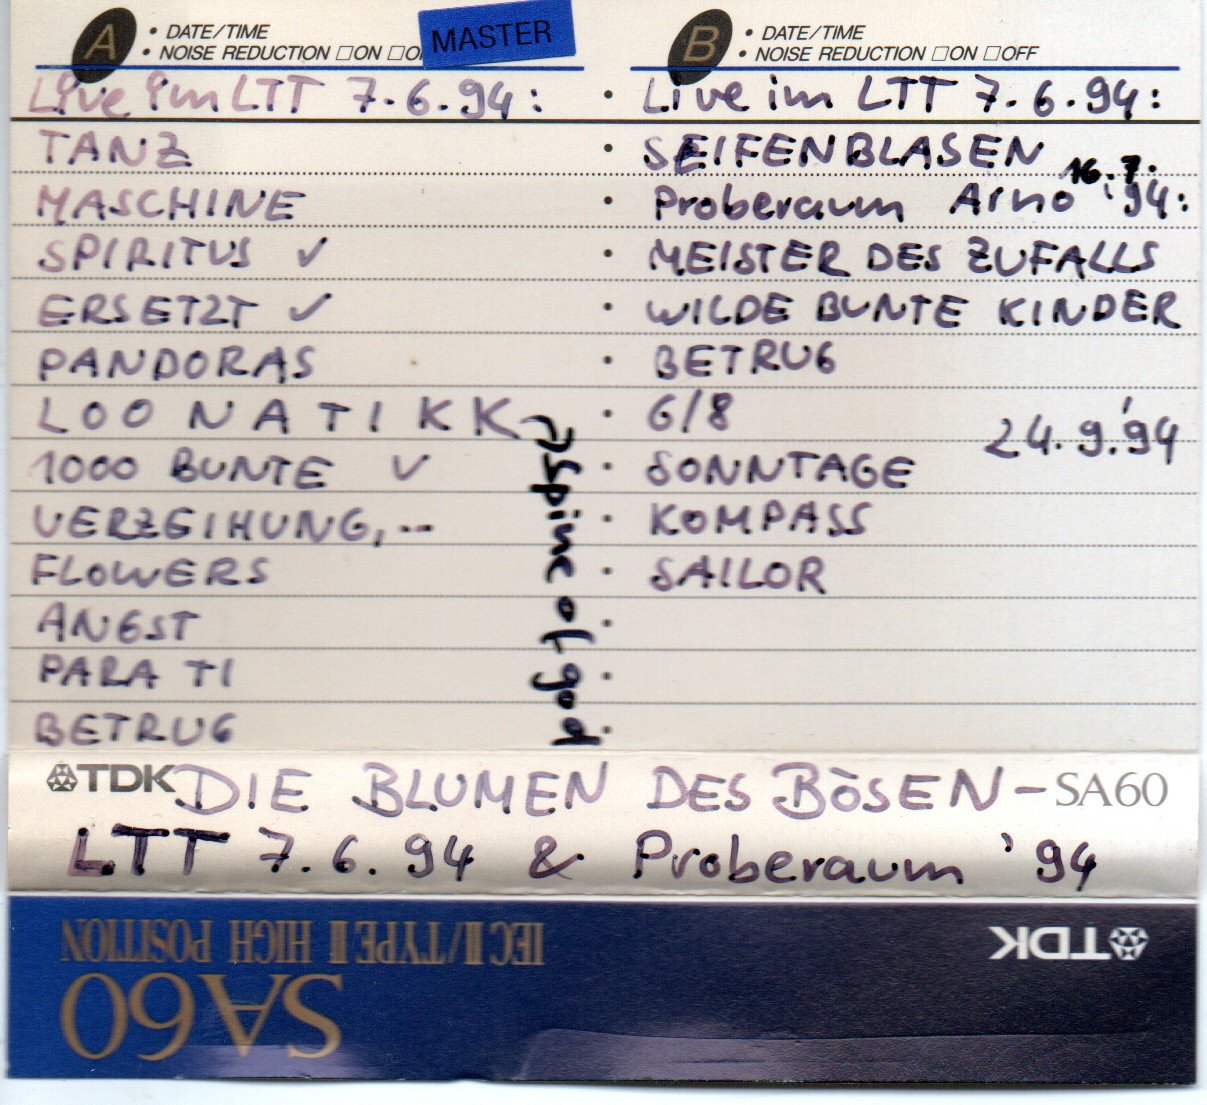 A
• DATE/TIME
• NOISE REDUCTION □ON □O
MASTER
Live im LTT 7.6.94:
TANZ
MASCHINE
SPIRITUS ✓
ERSETZT ✓
PANDORAS
LOONATIKK
1000 BUNTE ✓
VERZEIHUNG,--
FLOWERS
ANGST
PARA TI
BETRUG
Spine of god
B
• DATE/TIME
• NOISE REDUCTION □ON □OFF
• Live im LTT 7.6.94:
• SEIFENBLASEN
16.7.
• Proberaum Arno '94:
• MEISTER DES ZUFALLS
• WILDE BUNTE KINDER
• BETRUG
• 6/8
24.9.'94
• SONNTAGE
• KOMPASS
• SAILOR
TDK DIE BLUMEN DES BÖSEN - SA60
LTT 7.6.94 & Proberaum '94
TDK
IEC II/TYPE II HIGH POSITION
SA60